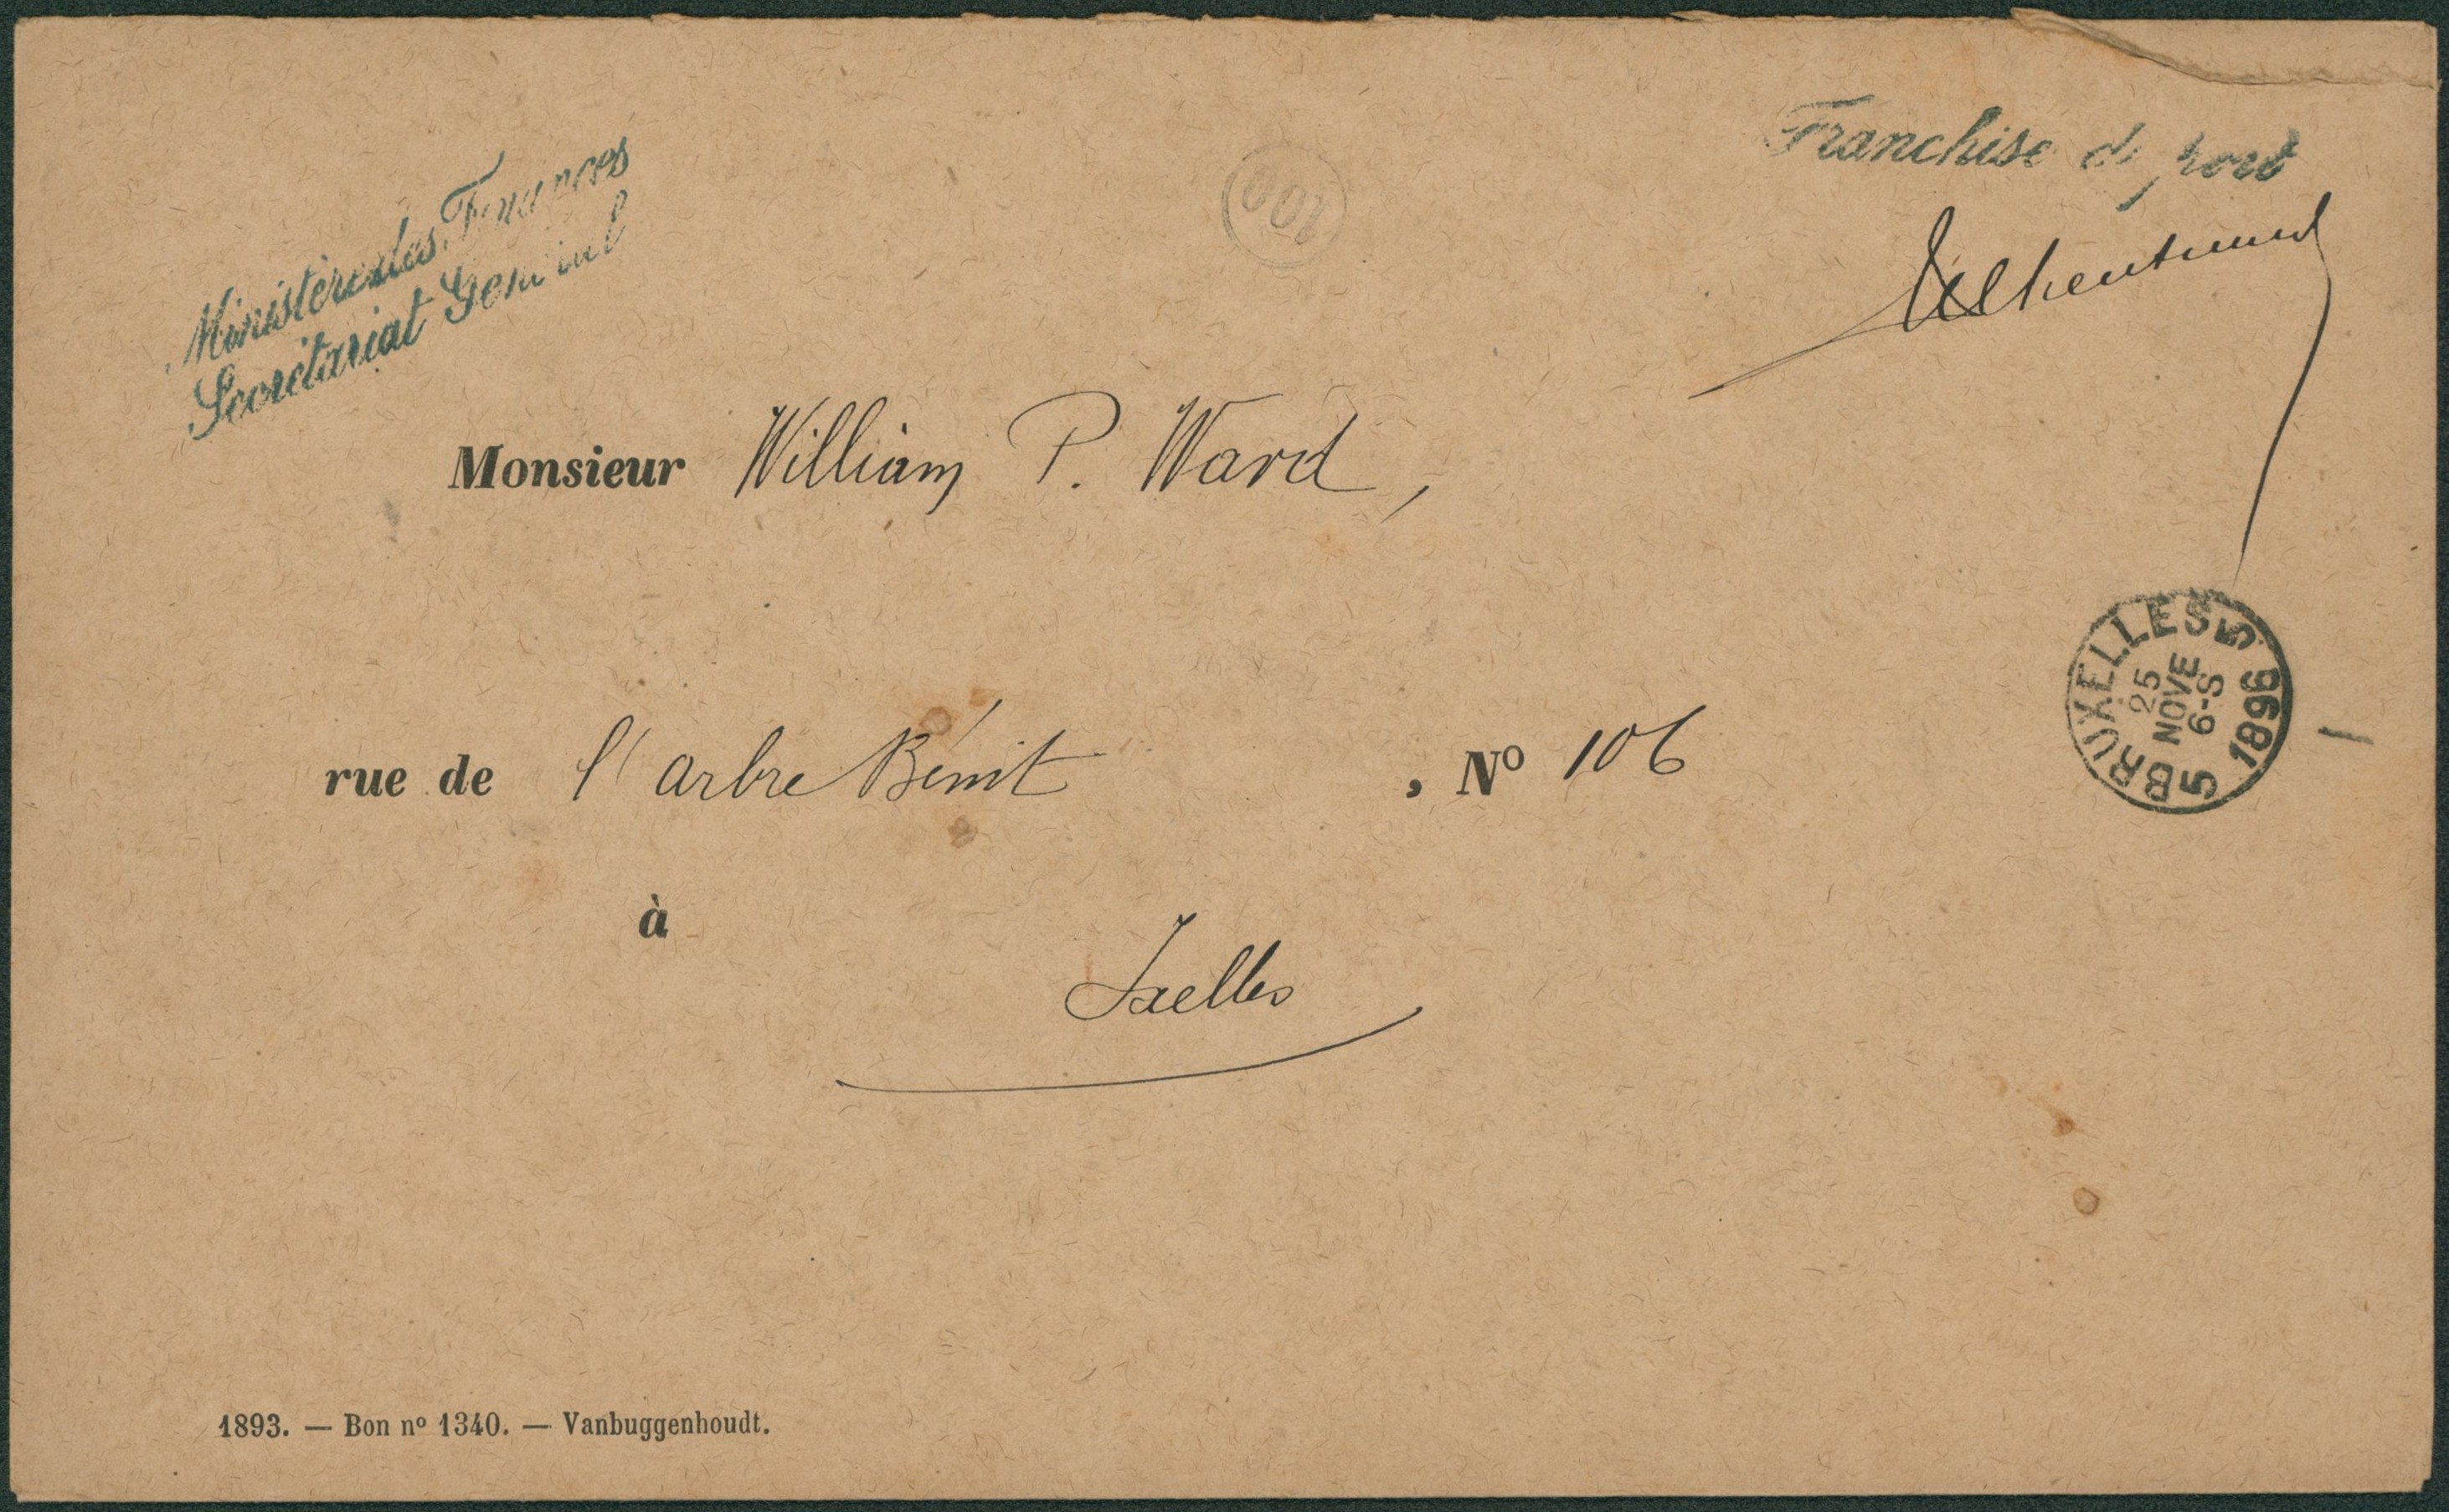 Ministère des Finances
Secrétariat Général
Franchise de port
Monsieur William P. Ward,
rue de l'arbre Bénit, No 106
à
Ixelles
5 BRUXELLES 5
25
NOVE
6-S
1896
1893. — Bon no 1340. — Vanbuggenhoudt.